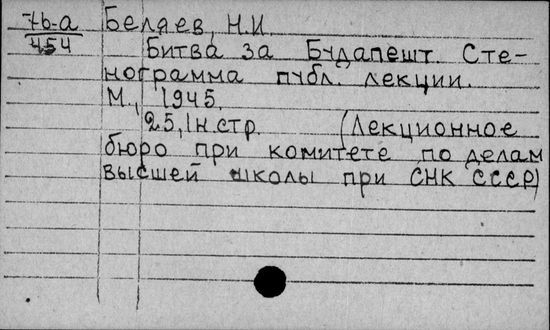 76-а Беляев, Н.И.
454 Битва за Будапешт. Сте-
нограмма публ. лекции.
М., 1945.
25,1н.стр. (Лекционное
бюро при комитете по делам
высшей школы при СНК СССР)